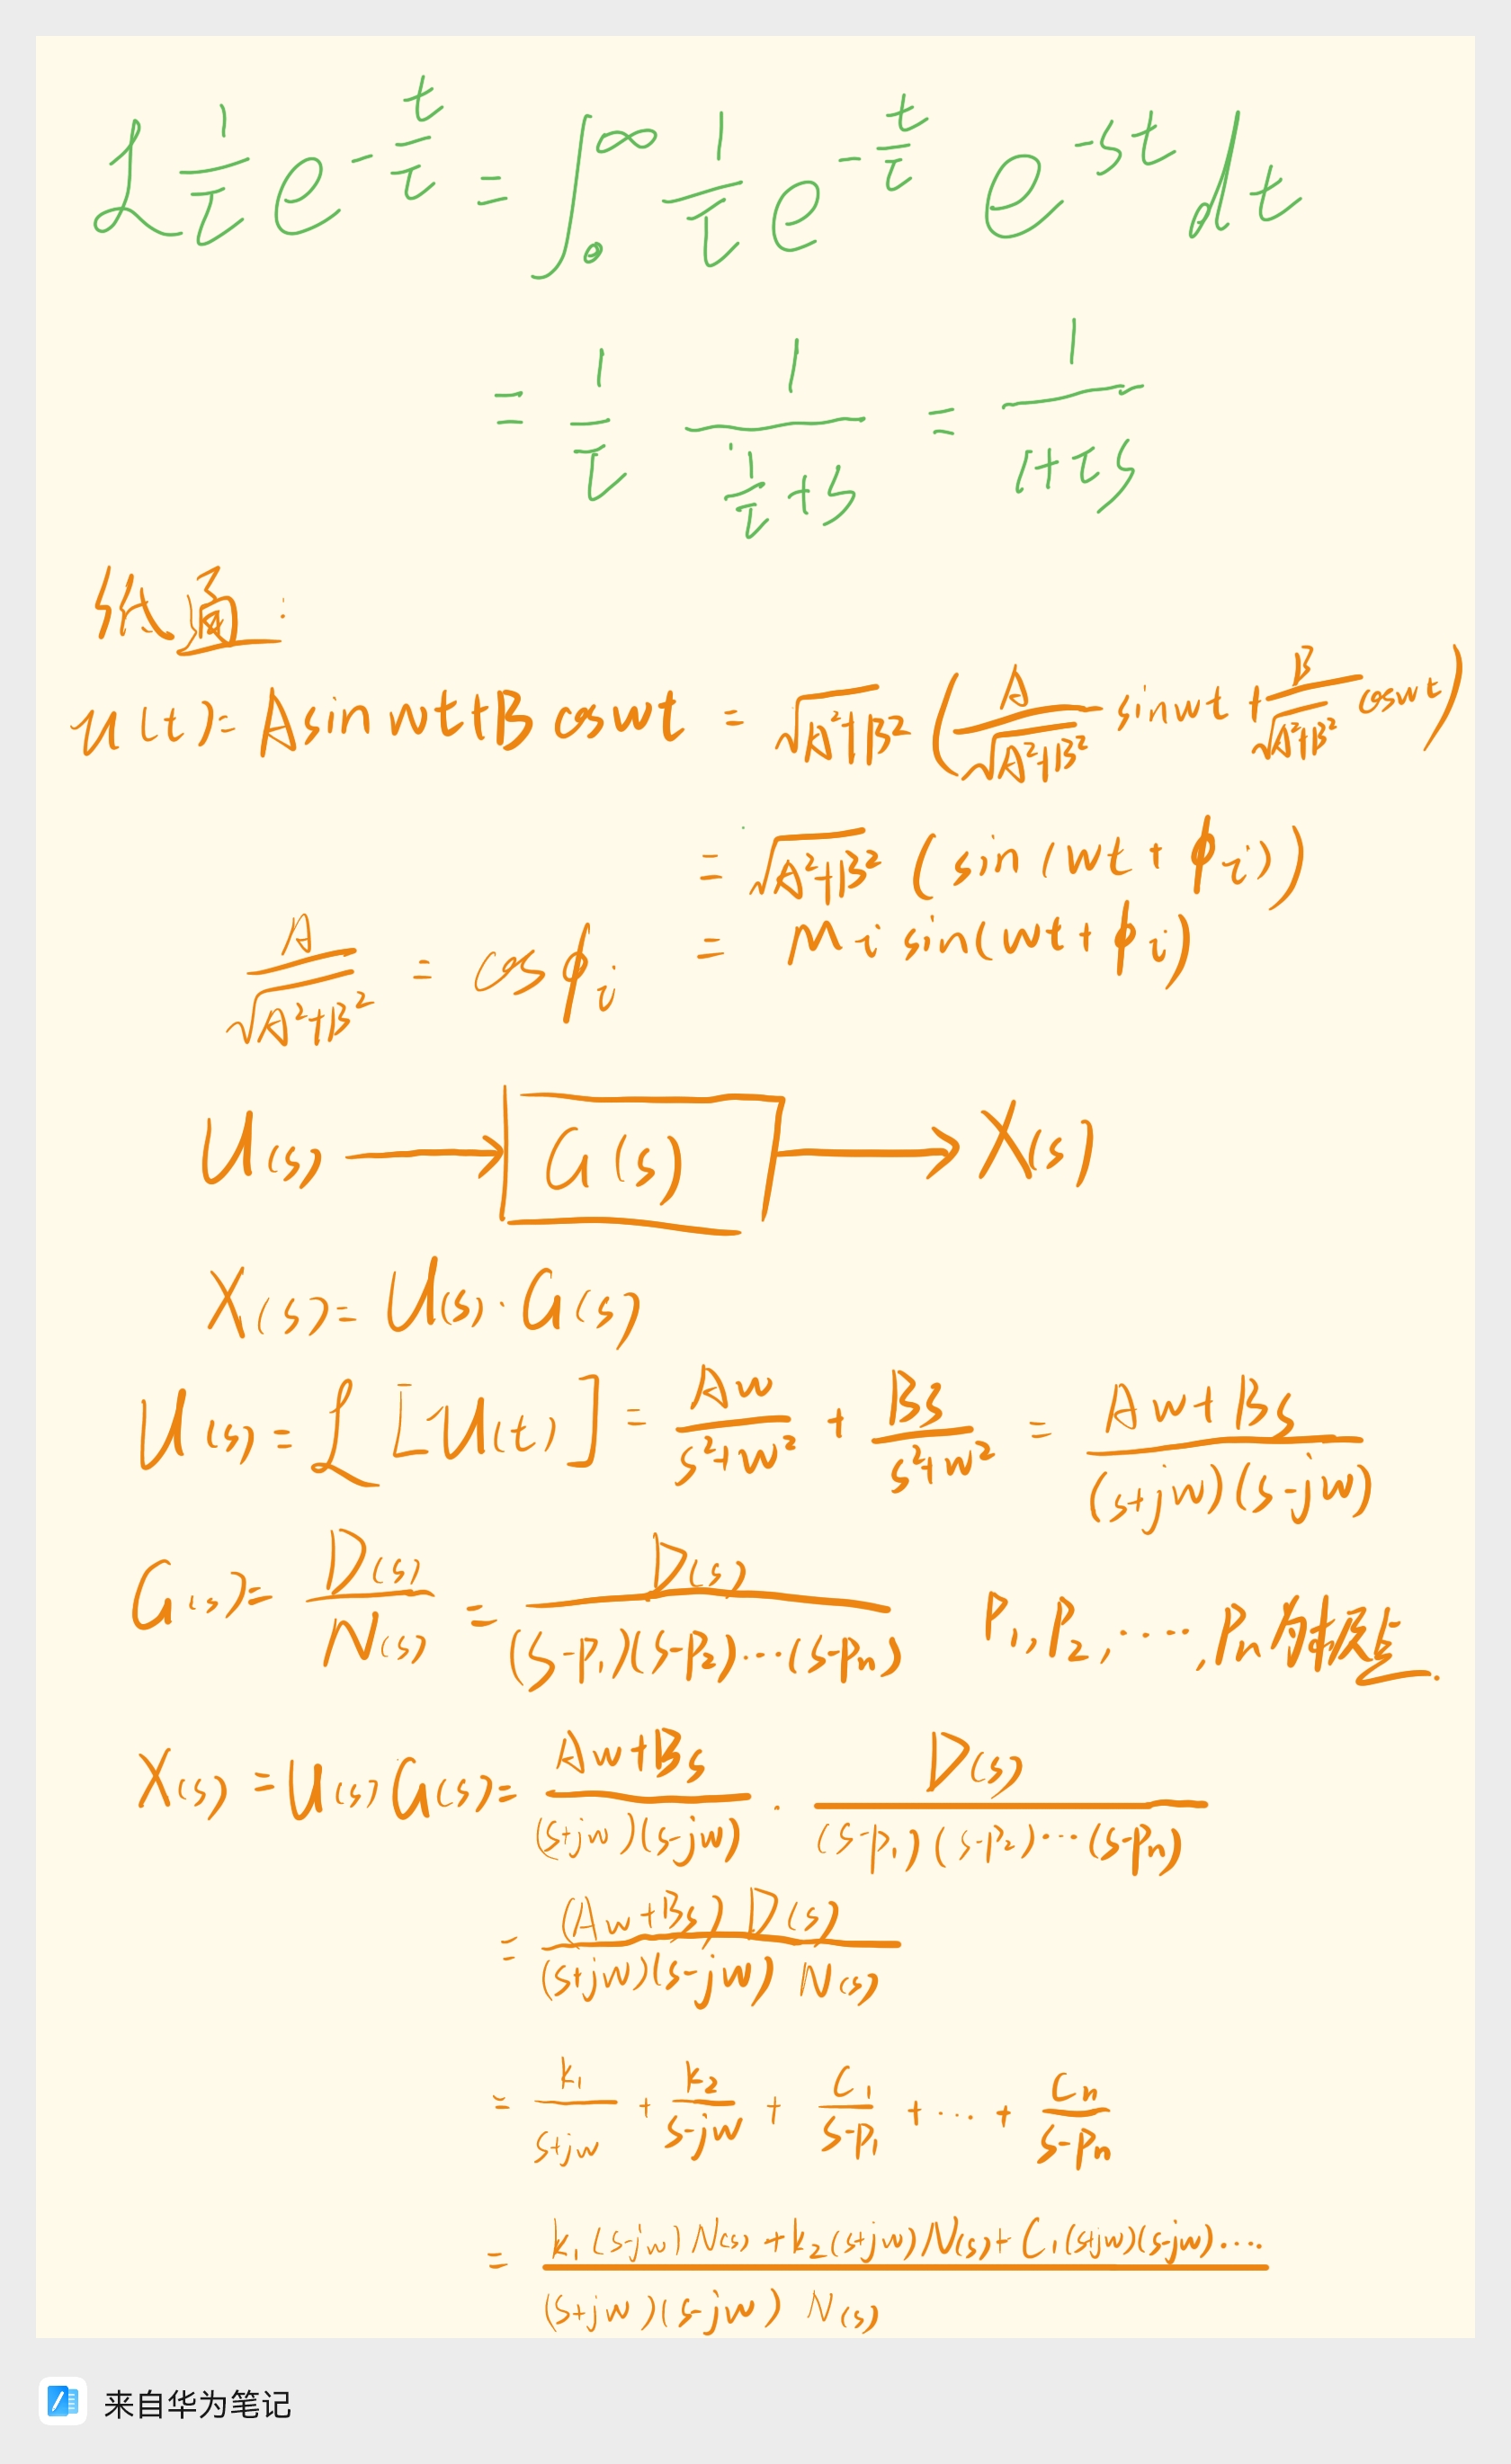 ℒ 1/τ e^(-t/τ) = ∫₀^∞ 1/τ e^(-t/τ) e^(-st) dt
= 1/τ · 1/(1/τ + s) = 1/(1+τs)
u(t) = A sin wt + B cos wt = √(A²+B²) (A/√(A²+B²) sin wt + B/√(A²+B²) cos wt)
= √(A²+B²) (sin(wt + ϕi))
A/√(A²+B²) = cos ϕi
= Mi sin(wt + ϕi)
U(s) → G(s) → X(s)
X(s) = U(s) · G(s)
U(s) = ℒ[u(t)] = Aw/(s²+w²) + Bs/(s²+w²) = (Aw+Bs)/((s+jw)(s-jw))
G(s) = D(s)/N(s) = D(s)/((s-p₁)(s-p₂)···(s-pn)) P₁, P₂, ····, Pn 传函极点.
X(s) = U(s)G(s) = (Aw+Bs)/((s+jw)(s-jw)) · D(s)/((s-p₁)(s-p₂)···(s-pn))
= (Aw+Bs)D(s)/((s+jw)(s-jw) N(s))
= k₁/(s+jw) + k₂/(s-jw) + C₁/(s-p₁) + ··· + Cn/(s-pn)
= (k₁(s-jw)N(s) + k₂(s+jw)N(s) + C₁(s+jw)(s-jw)····)/((s+jw)(s-jw) N(s))
来自华为笔记